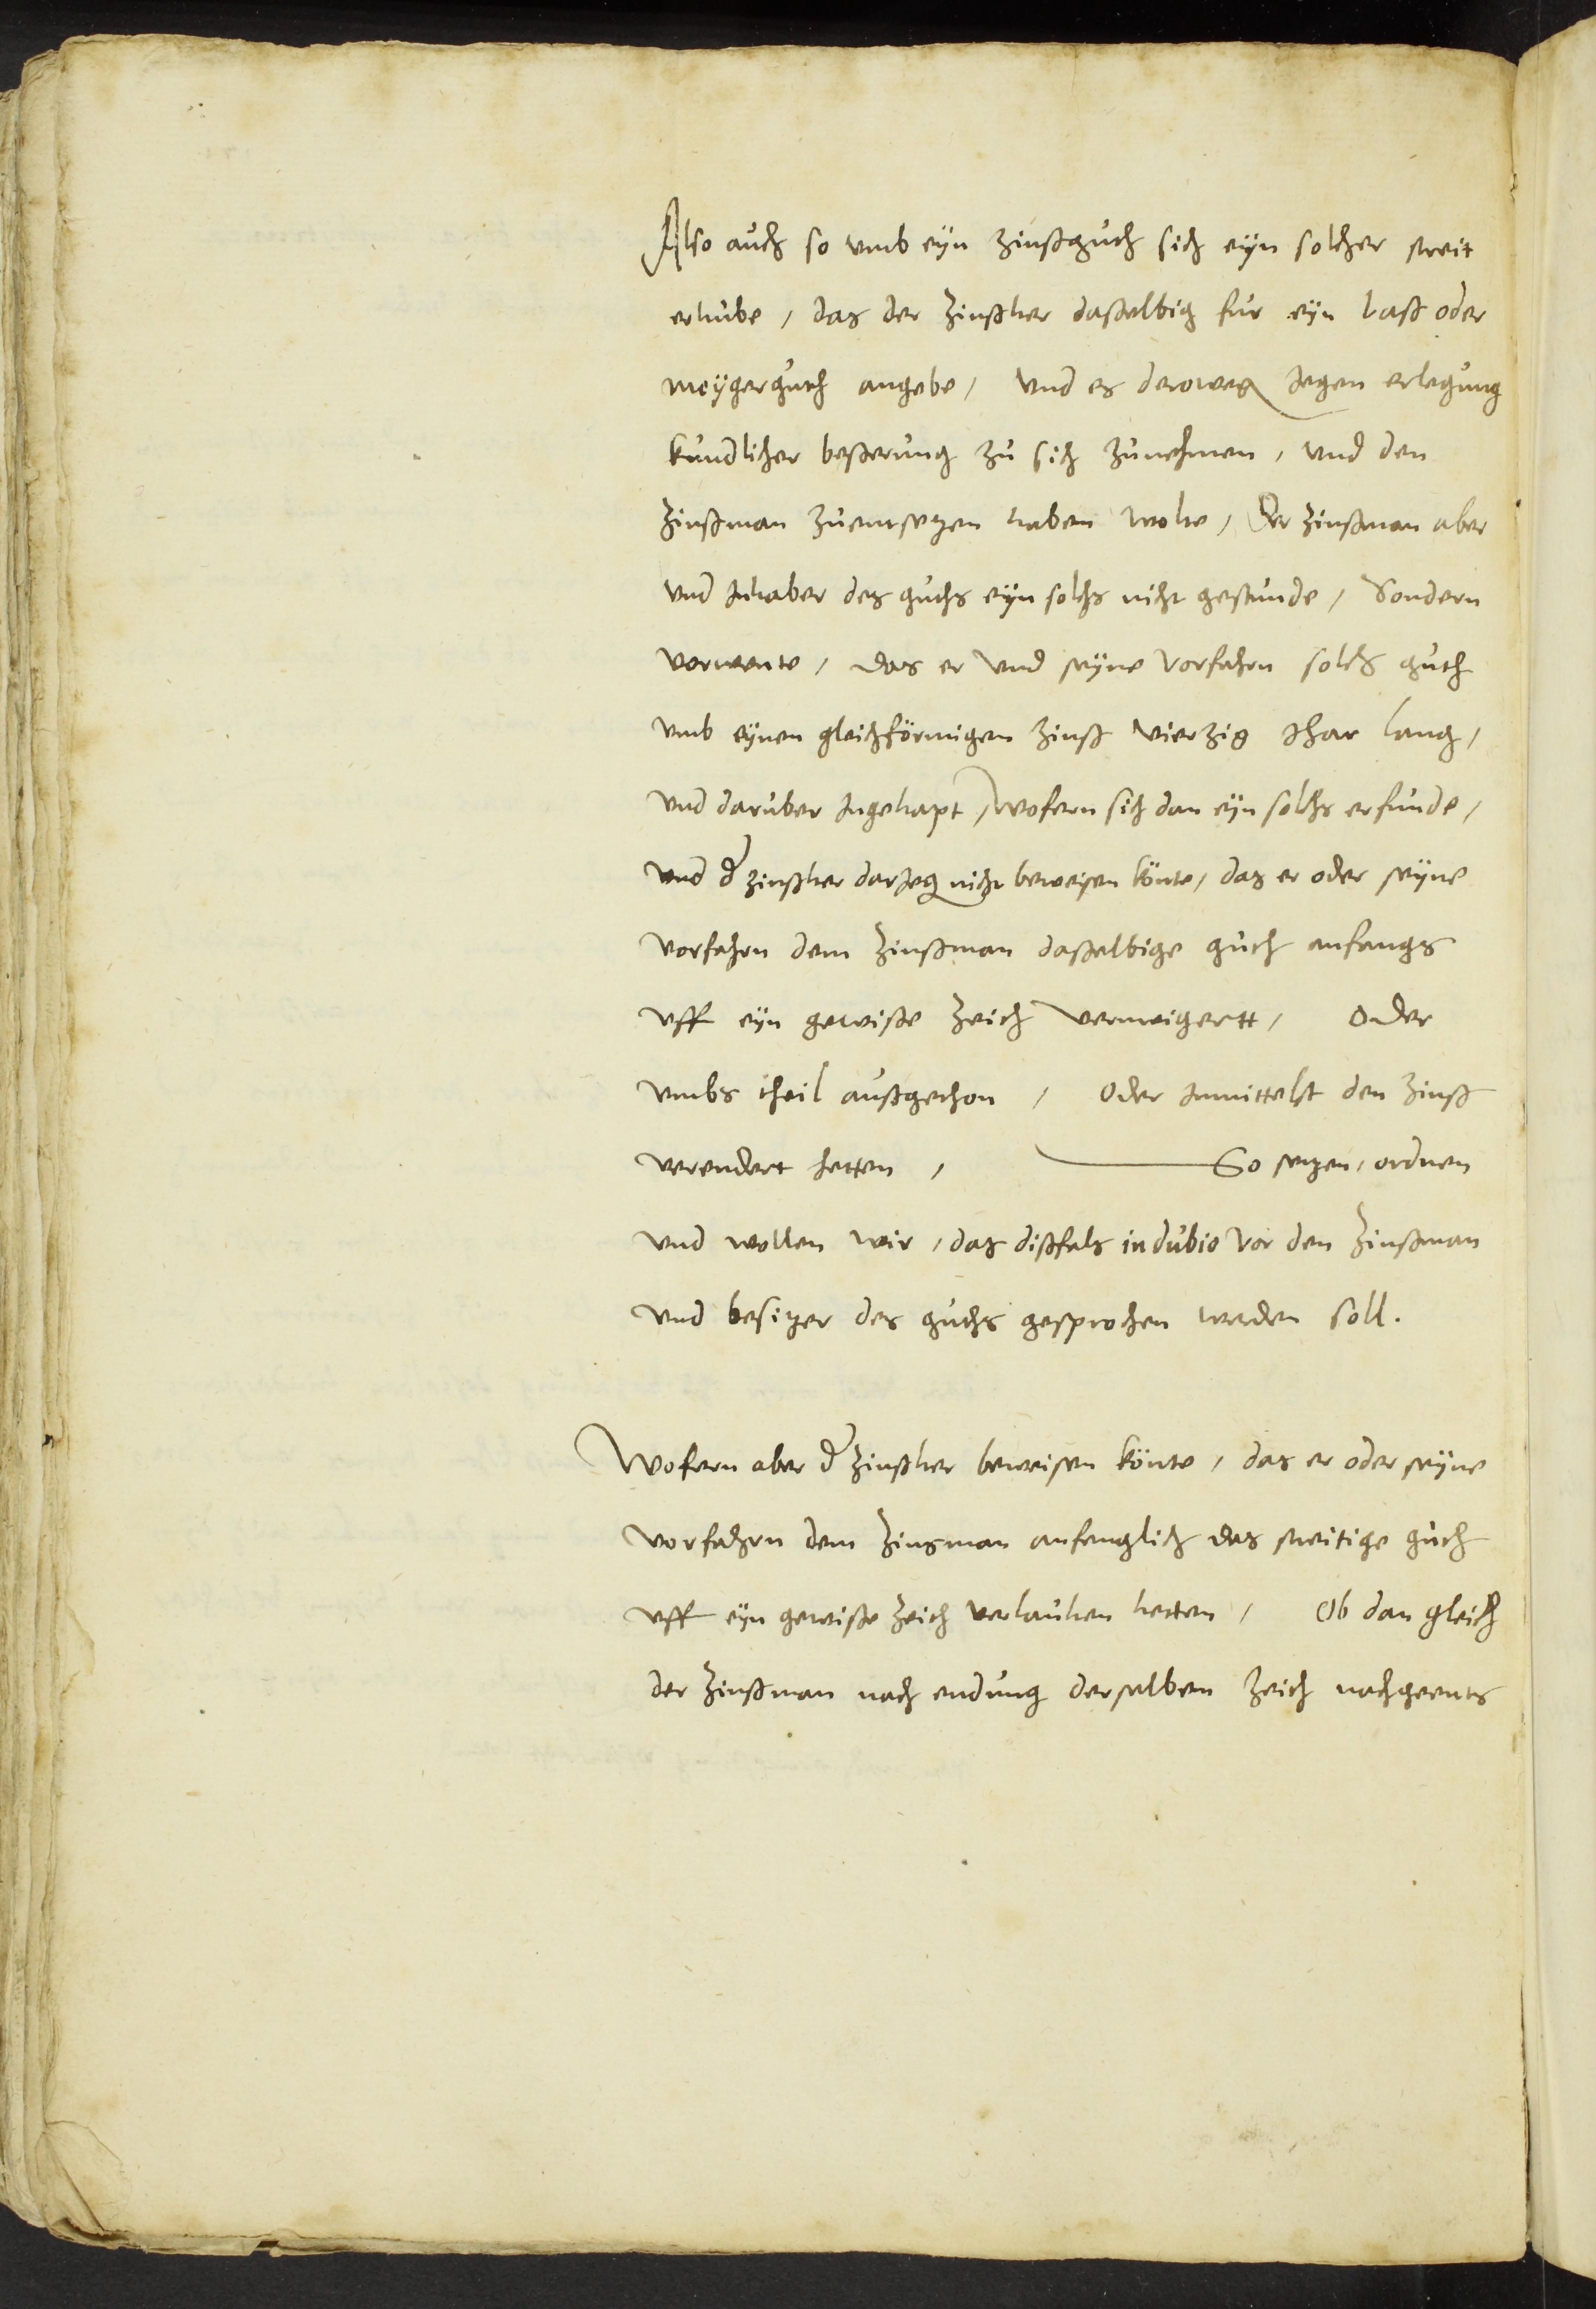 Also auch so vmb eÿn zinßguth sich eÿn solcher streit
erhube, das der Zinßher daßelbig fur eÿn laß oder
meÿgerguth angebe, vnd es deroweg Jegen erlegung
kundlicher beßerung zu sich zunehmen, vnd den
Zinßman zuentsetzen haben wolte, Der zinßman aber
vnd Jnhaber des guths eÿn solchs nicht gestunde, Sondern
vorwente, das er vnd seÿne Vorfahrn solchs guth
vmb eÿnen gleichförmigen zinß vierzig Jhar lang,
vnd daruber Jngehapt, Wofern sich dan eÿn solchs erfunde,
vnd d zinßher darJeg nicht beweisen könte, das er oder seÿne
vorfahrn dem Zinßman daßelbige guth anfangs
vff eÿn gewiße Zeith vermeigertt, Oder
vmbs theil außgethon, Oder Jnmittelst den Zinß
verendert hetten, So setzen, ordnen
vnd wollen wir, das dißfals in dubio vor den Zinßman
vnd besitzer des guths gesprochen werden soll.
Wofern aber d Zinßher beweisen könte, das er oder seÿne
vorfahrn dem Zinsman anfenglich das streitige guth
vff eÿn gewiße Zeith verlauhen hetten, Ob dan gleich
der Zinßman nach endung derselben Zeith nachgeents